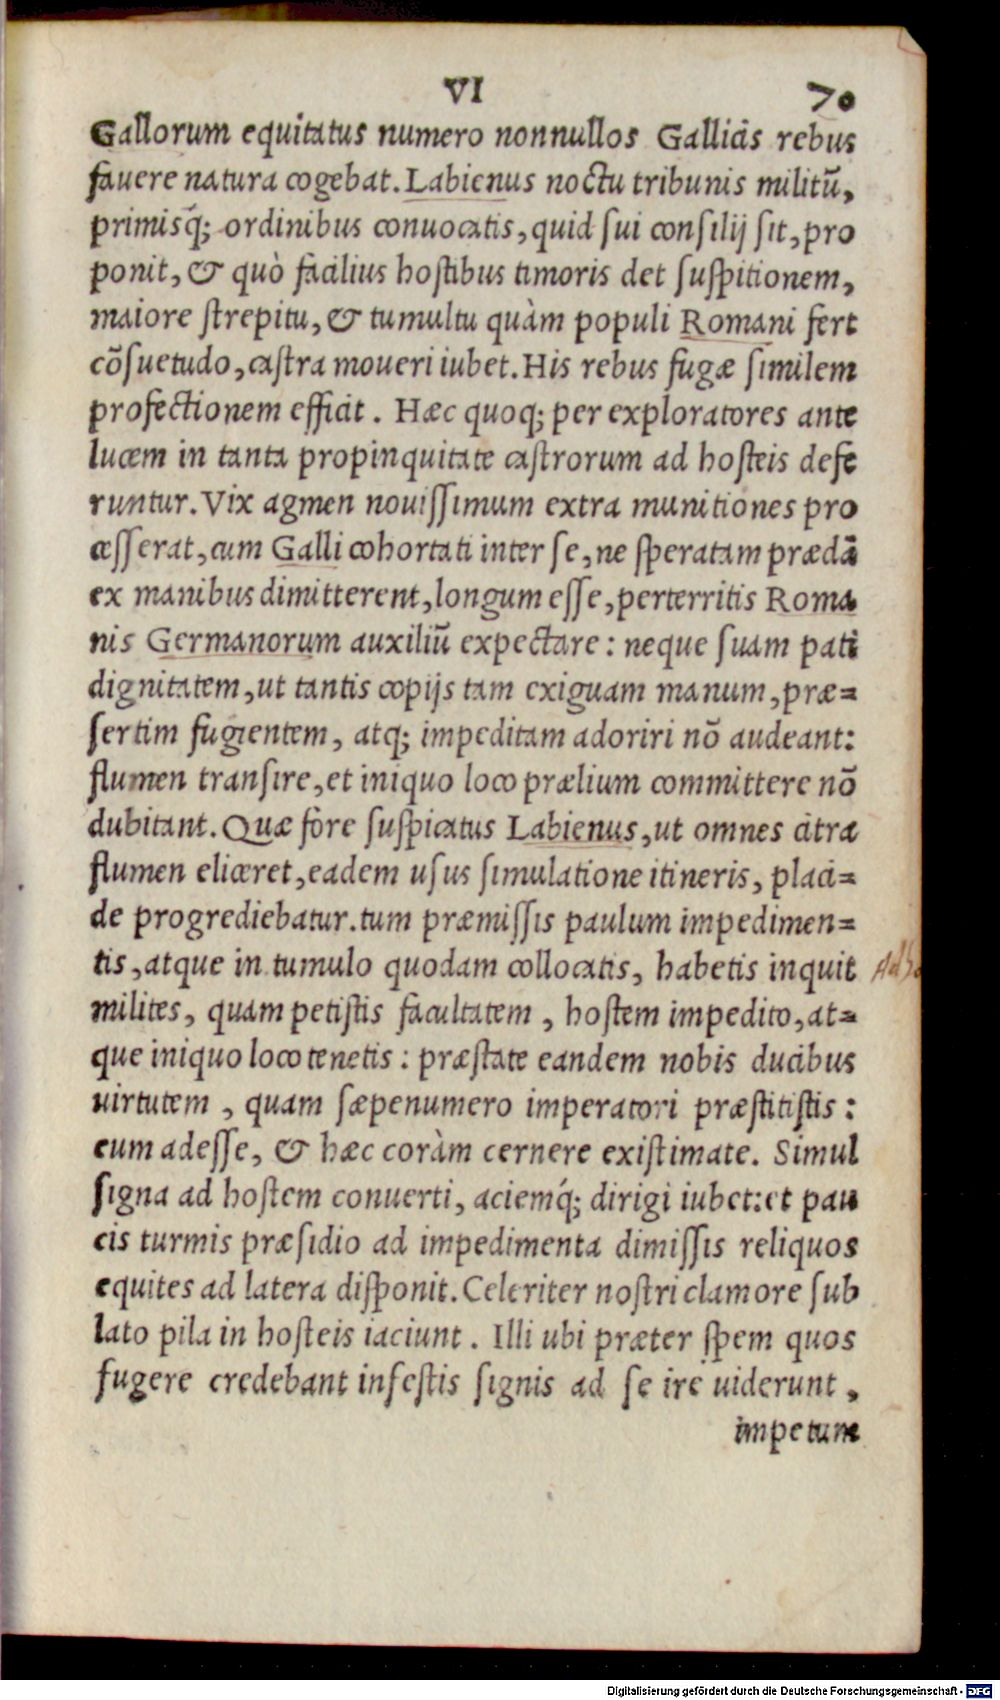 VI 70
Gallorum equitatus numero nonnullos Gallicis rebus
fauere natura cogebat. Labienus noctu tribunis militū,
primisq́; ordinibus conuocatis, quid sui consilij sit, pro
ponit, & quò facilius hostibus timoris det suspitionem,
maiore strepitu, & tumultu quàm populi Romani fert
cōsuetudo, castra moueri iubet. His rebus fugæ similem
profectionem efficit. Hæc quoq; per exploratores ante
lucem in tanta propinquitate castrorum ad hosteis defe
runtur. Vix agmen nouissimum extra munitiones pro
cesserat, cum Galli cohortati inter se, ne speratam prædā
ex manibus dimitterent, longum esse, perterritis Roma
nis Germanorum auxiliū expectare: neque suam pati
dignitatem, ut tantis copijs tam exiguam manum, præ=
sertim fugientem, atq; impeditam adoriri nō audeant:
flumen transire, et iniquo loco prælium committere nō
dubitant. Quæ fore suspicatus Labienus, ut omnes citra
flumen eliceret, eadem usus simulatione itineris, placi=
de progrediebatur. tum præmissis paulum impedimen=
tis, atque in tumulo quodam collocatis, habetis inquit
milites, quam petistis facultatem, hostem impedito, at=
que iniquo loco tenetis: præstate eandem nobis ducibus
uirtutem, quam sæpenumero imperatori præstitistis:
eum adesse, & hæc coràm cernere existimate. Simul
signa ad hostem conuerti, aciemq́; dirigi iubet: et pau
cis turmis præsidio ad impedimenta dimissis reliquos
equites ad latera disponit. Celeriter nostri clamore sub
lato pila in hosteis iaciunt. Illi ubi præter spem quos
fugere credebant infestis signis ad se ire uiderunt,
impetum
Digitalisierung gefördert durch die Deutsche Forschungsgemeinschaft - DFG